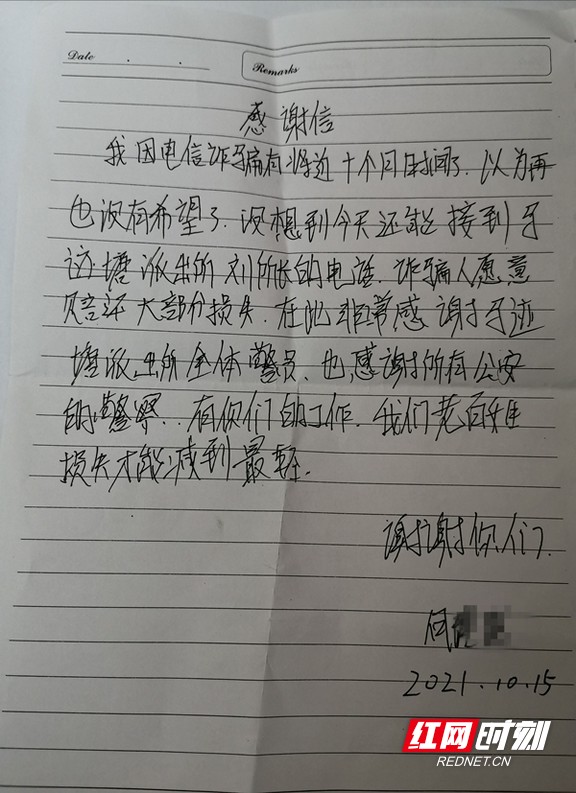 Date
Remarks
感谢信
我因电信诈骗有将近十个月时间了.以为再
也没有希望了.没想到今天还能接到于
迹塘派出所刘所长的电话.诈骗人愿意
赔还大部分损失.在此非常感谢于迹
塘派出所全体警员.也感谢所有公安
的警察..有你们的工作.我们老百姓
损失才能减到最轻.
谢谢你们.
何
2021.10.15
红网时刻
REDNET.CN